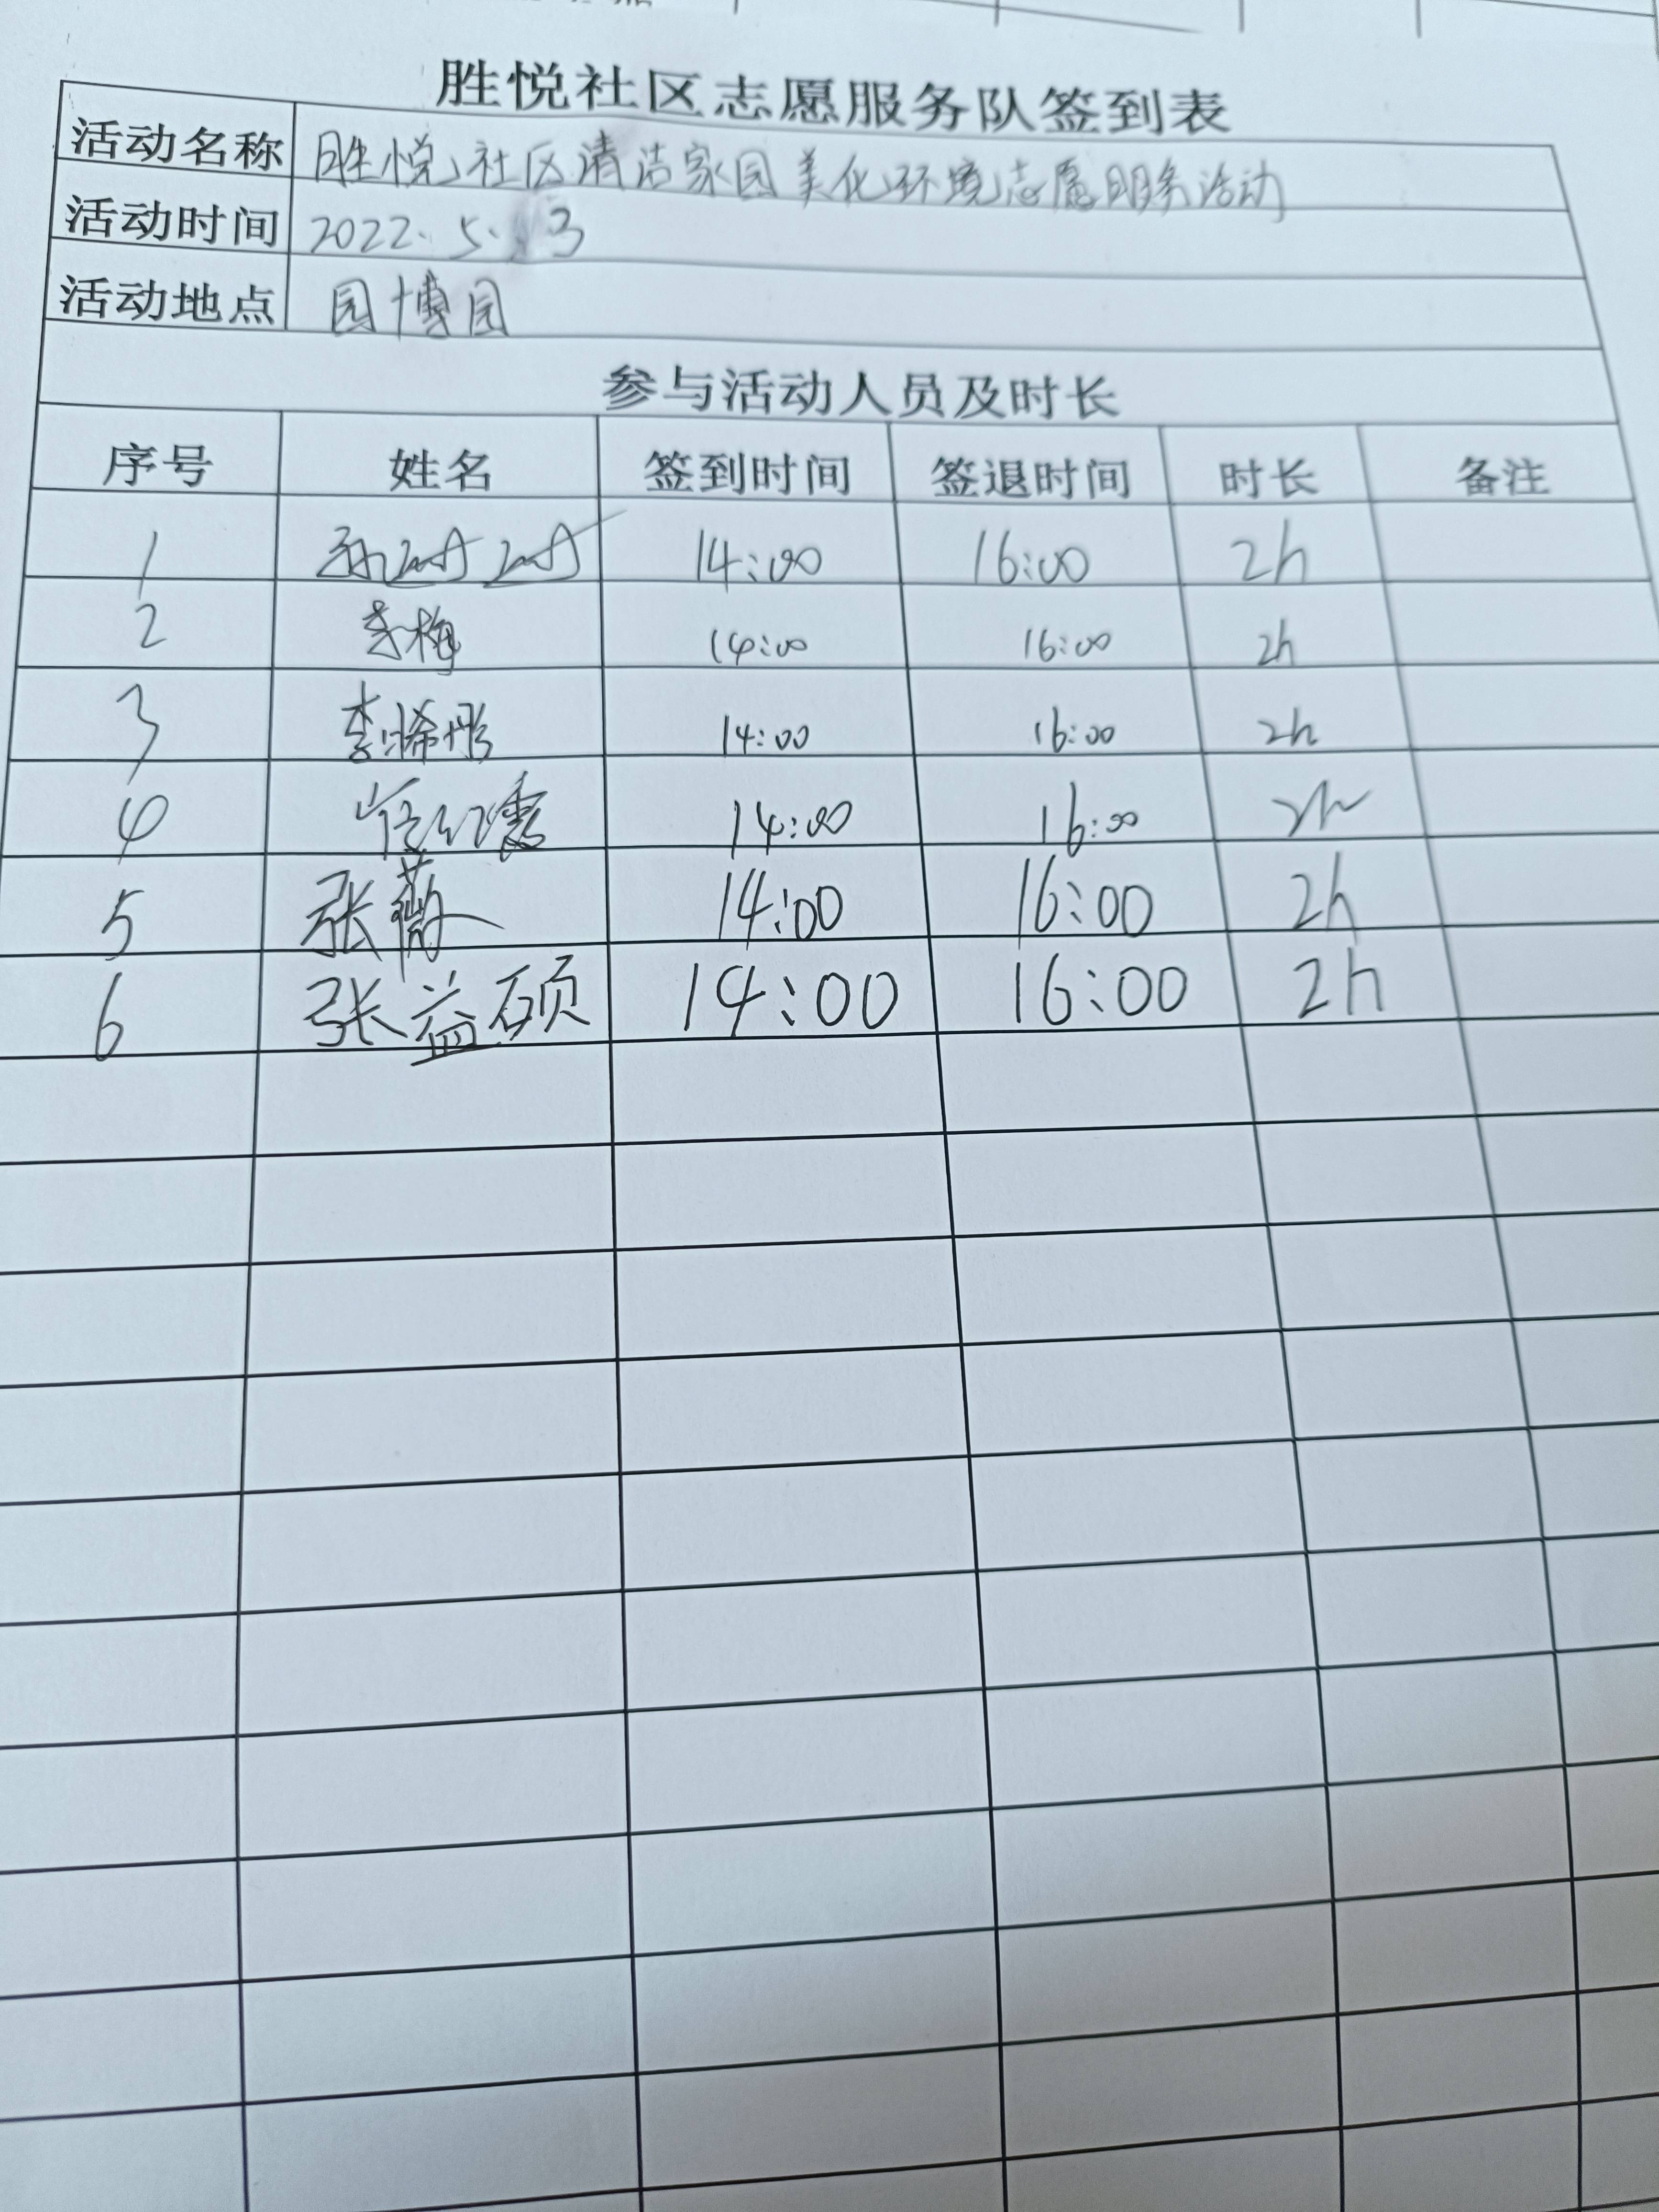 胜悦社区志愿服务队签到表
活动名称 胜悦社区清洁家园美化环境志愿服务活动
活动时间 2022.5. 3
活动地点 园博园
参与活动人员及时长
序号 姓名 签到时间 签退时间 时长 备注
1 14:00 16:00 2h
2 李梅 14:00 16:00 2h
3 李晞彤 14:00 16:00 2h
4 14:00 16:00 2h
5 张薇 14:00 16:00 2h
6 张益硕 14:00 16:00 2h